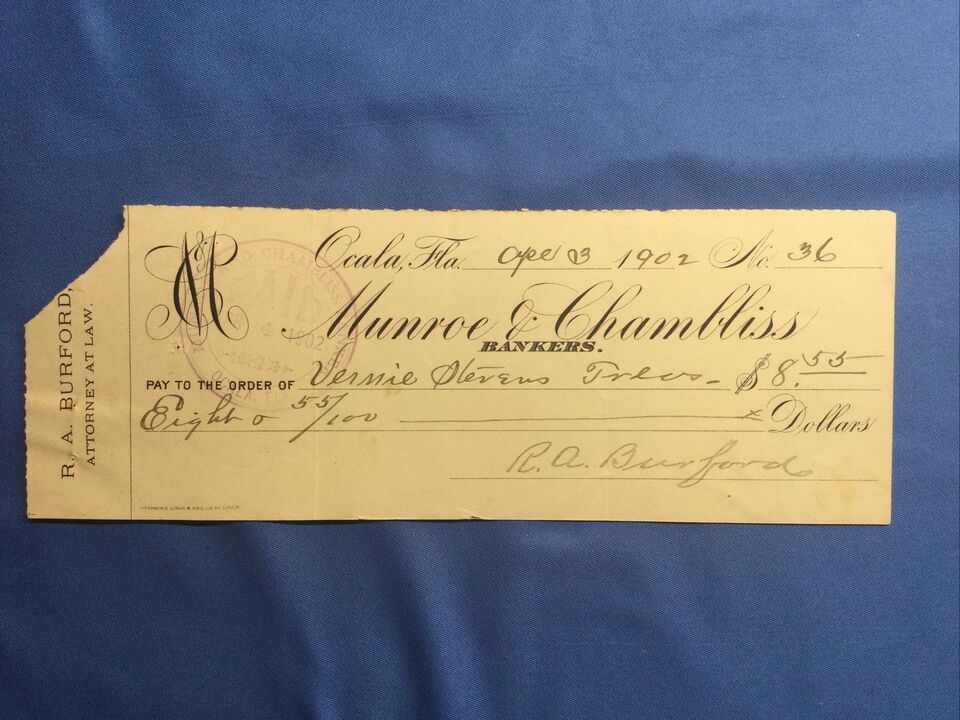 R. A. BURFORD,
ATTORNEY AT LAW.
Ocala, Fla. Apl 3 1902 No. 36
Munroe & Chambliss
BANKERS.
PAY TO THE ORDER OF Vernie Stevens Treas $8.55
Eight o 55/100 x Dollars
R. A. Burford
CHAMBLISS
PAID
4 1902
OCALA, FLA.